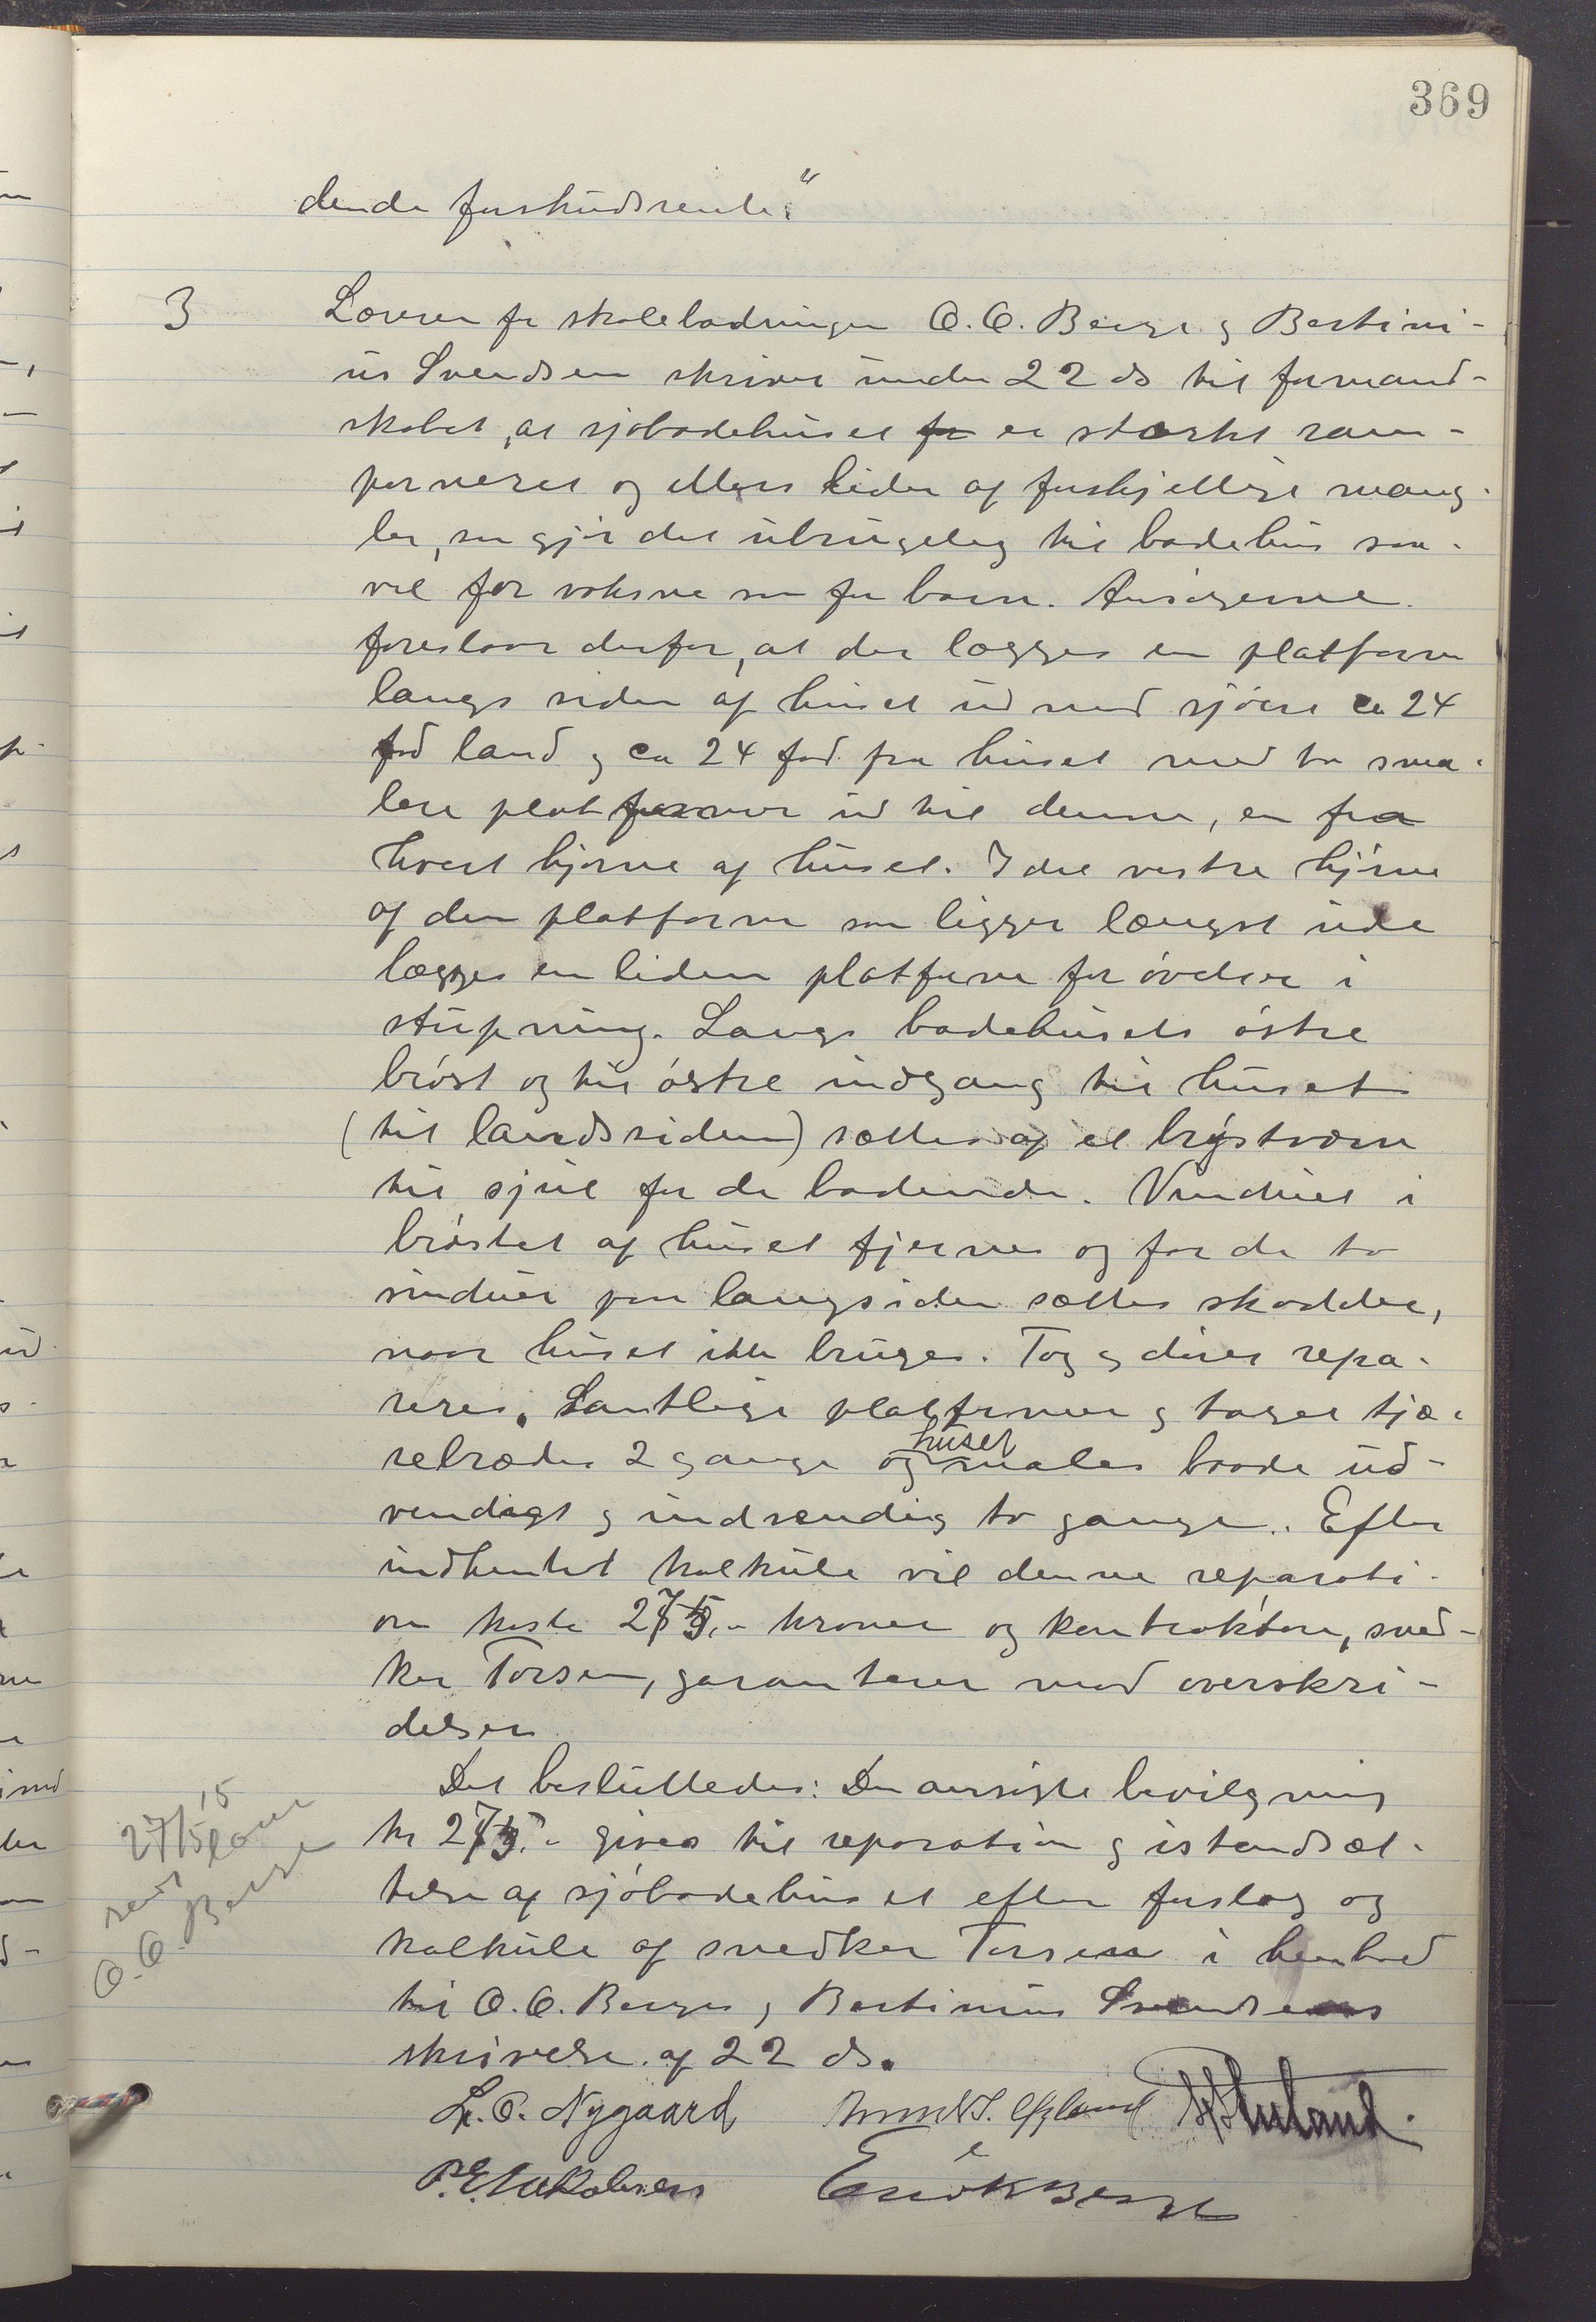 369
dende forskudsrente."
3 Lærer for skolebadningen O. O. Berge og Bertini-
us Svendsen skriver under 22 ds til formand-
skabet, at sjøbadehuset er stærkt ram-
poneret og ellers lider af forskjellige mang-
ler, som gjør det ubrugelig til badehus saa-
vel for voksne som for barn. Ansøgerne
foreslaar derfor, at der lægges en platform
langs siden af huset ud mod sjøen ca 24
fod land og ca 24 fod fra huset med to sma-
lere platformer ud til denne, en fra
hvert hjørne af huset. I det vestre hjørne
af den platform som ligger længst ude
lægges en liden platform for øvelse i
stupning. Langs badehusets østre
brøst og til østre indgang til huset
(til landssiden) sættes op et brystværn
til sjul for de badende. Vinduet i
brøstet af huset fjernes og for de to
vinduer paa langsiden sættes skodder,
naar huset ikke bruges. Tag og dører repa-
reres. Samtlige platformer og taget tjæ-
rebrædes 2 gange og huset males baade ud-
vendigt og indvendig to gange. Efter
indhentet kalkule vil denne reparati-
on koste 275,- kroner og kontraktøren, sned-
ker Torsen, garanterer mod overskri-
delser.
Det besluttedes: Den ansøgte bevilgning
kr 275.- gives til reparation og istandsæt-
telse af sjøbadehuset efter forslag og
kalkule af snedker Torsen i henhold
til O. O. Berges og Bertinius Svendsens
skrivelse af 22 ds.
27/5 15
O. O. Berge
L. O. Nygaard
P. E. Jakobsen Erik Berge